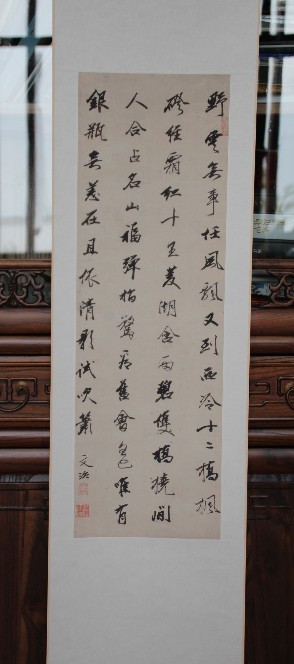 野雲無事任風飄又到西泠十二橋楓
磴經霜紅十里菱湖含雨碧雙橋閒
人合占名山福彈指驚看舊會凋唯有
銀瓶無恙在且依清影試吹簫 文治